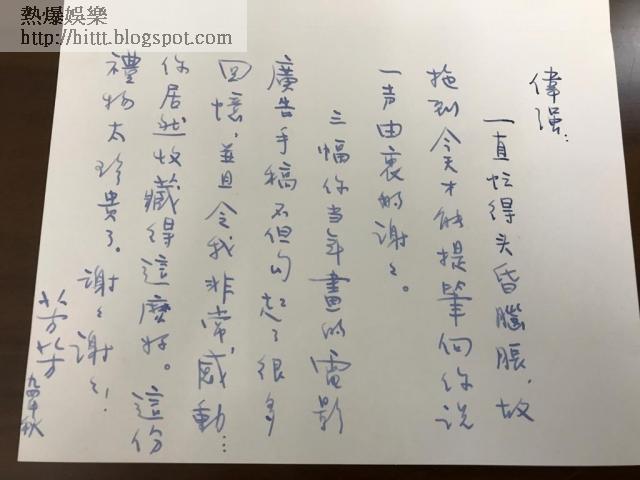 熱爆娛樂
http://hittt.blogspot.com/
偉强：
一直忙得头昏腦脹，故
拖到今天才能提筆向你說
一声由衷的谢々。
三幅你当年畫的電影
廣告手稿不但勾起了很多
回憶，並且令我非常感動…
你居然收藏得這麼好。這份
禮物太珍贵了。谢々谢々！
芳芳
九四年秋